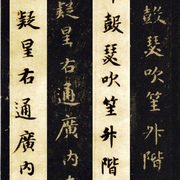 鼓瑟吹笙升階
鼓瑟吹笙升階
疑星右通廣內
疑星右通廣內